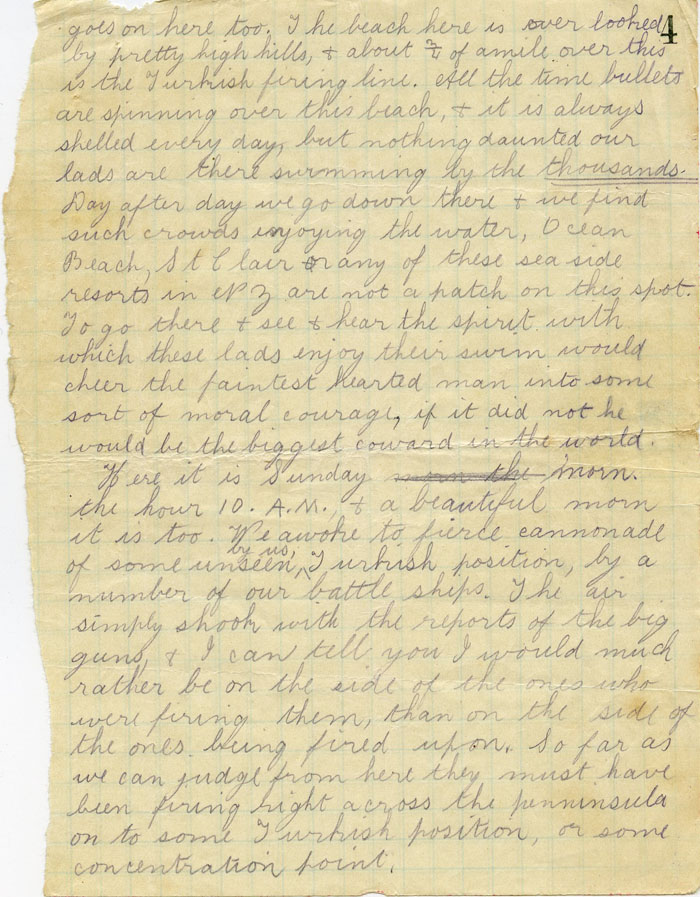 4
goes on here too. The beach here is over looked
by pretty high hills, & about ¾ of a mile over this
is the Turkish firing line. All the time bullets
are spinning over this beach, & it is always
shelled every day, but nothing daunted our
lads are there swimming by the thousands.
Day after day we go down there & we find
such crowds enjoying the water, Ocean
Beach, St Clair or any of these sea side
resorts in N Z are not a patch on this spot.
To go there & see & hear the spirit with
which these lads enjoy their swim would
cheer the faintest hearted man into some
sort of moral courage, if it did not he
would be the biggest coward in the world.
Here it is Sunday morn the morn.
the hour 10. A.M., & a beautiful morn
it is too. We awoke to fierce cannonade
by us,
of some unseen, Turkish position, by a
number of our battle ships. The air
simply shook with the reports of the big
guns, & I can tell you I would much
rather be on the side of the ones who
were firing them, than on the side of
the ones being fired upon. So far as
we can judge from here they must have
been firing right across the penninsula
on to some Turkish position, or some
concentration point.